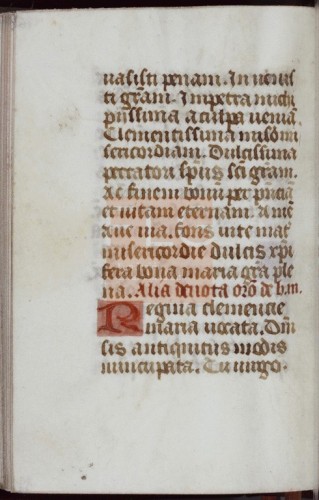 uasisti penam. In uenis
ti grãm. Impetra michi
pijssima a culpa uenia.
Clementissima
sericordiam. Dulcissima
peccatori spũs sci grãm.
Ac finem bonũ per
et uitam eternam. Amẽ
aue ma. fons uite mat̃
misericordie dulcis xp̃i
fera bona maria grã ple
na. Alia deuota orõ de b.m.
Regina clemencie
maria uocata. Dm̃
sis antiquitus modis
nuncupata. Tu uirgo.